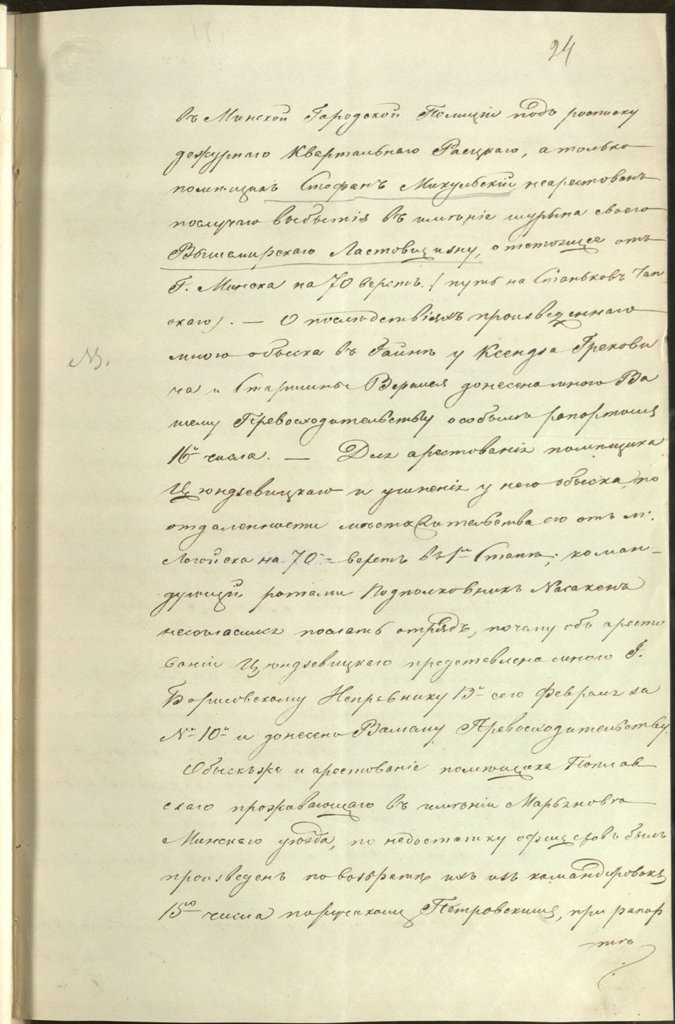 24
въ Минской Городской Полиціи подъ росписку
дежурнаго Квартальнаго Расцкаго, а только
помѣщикъ Стефанъ Микульскій неарестованъ
послучаю выбытія въ имѣніе шурына своего
Вышамирскаго Ластовищизну, отстоящее отъ
Г. Минска на 70 верстъ. (путь на Станьковъ Чап-
скаго). — О послѣдствіяхъ произведеннаго
мною обыска въ Гайнѣ у Ксендза Грекови
ча и Старшины донесено мною Ва
шему Превосходительству особымъ рапортомъ
16го числа. — Для арестованія помѣщика
Цюндзевицкаго и учиненія у него обыска, по
отдаленности мѣста жительства его отъ м.
Логойска на 70ть верстъ въ 1мъ Станѣ; коман-
дующій ротами Подполковникъ Насакенъ
несогласился послать отрядъ, почему объ аресто
ваніи Цюндзевицкаго представлено мною Г.
Борисовскому Исправнику 13го сего Февраля за
№ 10мъ и донесено Вашему Превосходительству.
Обыскъ же и арестованіе помѣщика Поплав
скаго проживающаго въ имѣніи Марьяново
Минскаго уѣзда, по недостатку офицеровъ былъ
произведенъ по возвратѣ ихъ изъ командировокъ
15го числа поручикомъ Петровскимъ, при рапор
тѣ